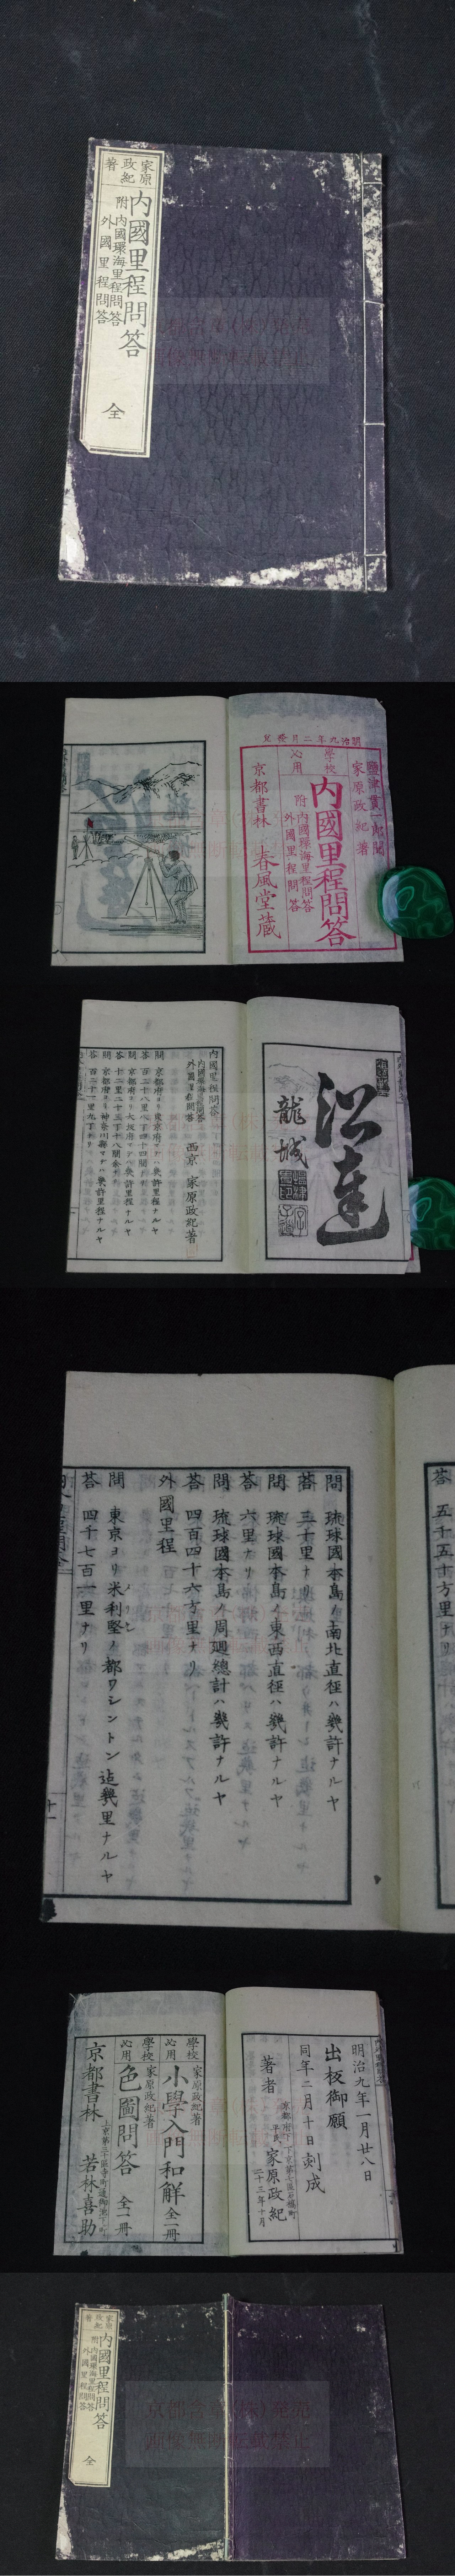 家原
政紀
著
内國里程問答
附 内國環海里程問答
外國里程問答
全
明治九年二月發兌
家原政紀著
學校
必用
内國里程問答
附 内國環海里程問答
外國里程問答
京都書林 春風堂藏
龍城
内國里程問答
内國環海里程問答
外國里程問答
西京 家原政紀著
問 京都府ヨリ東京府マデハ幾許里程ナルヤ
問 京都府ヨリ大坂府マデハ幾許里程ナルヤ
問 京都府ヨリ神奈川縣マデハ幾許里程ナルヤ
答 五千五十方里ナリ
問 琉球國本島ノ南北直徑ハ幾許ナルヤ
答 三十里ナリ
問 琉球國本島ノ東西直徑ハ幾許ナルヤ
答 六里ナリ
問 琉球國本島ノ周廻總計ハ幾許ナルヤ
答 四百四十六方里ナリ
外國里程
問 東京ヨリ米利堅ノ都ワシントン迠幾里ナルヤ
答 四千七百一里ナリ
十一
明治九年一月廿八日
出板御願
同年二月十日刻成
著者
家原政紀
二十三年十月
學校
必用
家原政紀著
小學入門和解 全一冊
學校
必用
家原政紀著
色圖問答 全一冊
京都書林
若林喜助
家原
政紀
著
内國里程問答
附 内國環海里程問答
外國里程問答
全